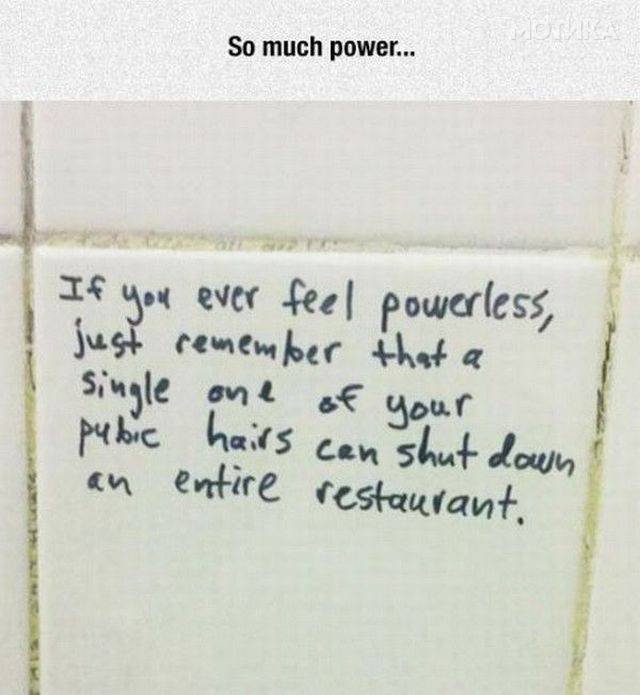 МОТИКА
So much power...
If you ever feel powerless,
just remember that a
single one of your
pubic hairs can shut down
an entire restaurant.